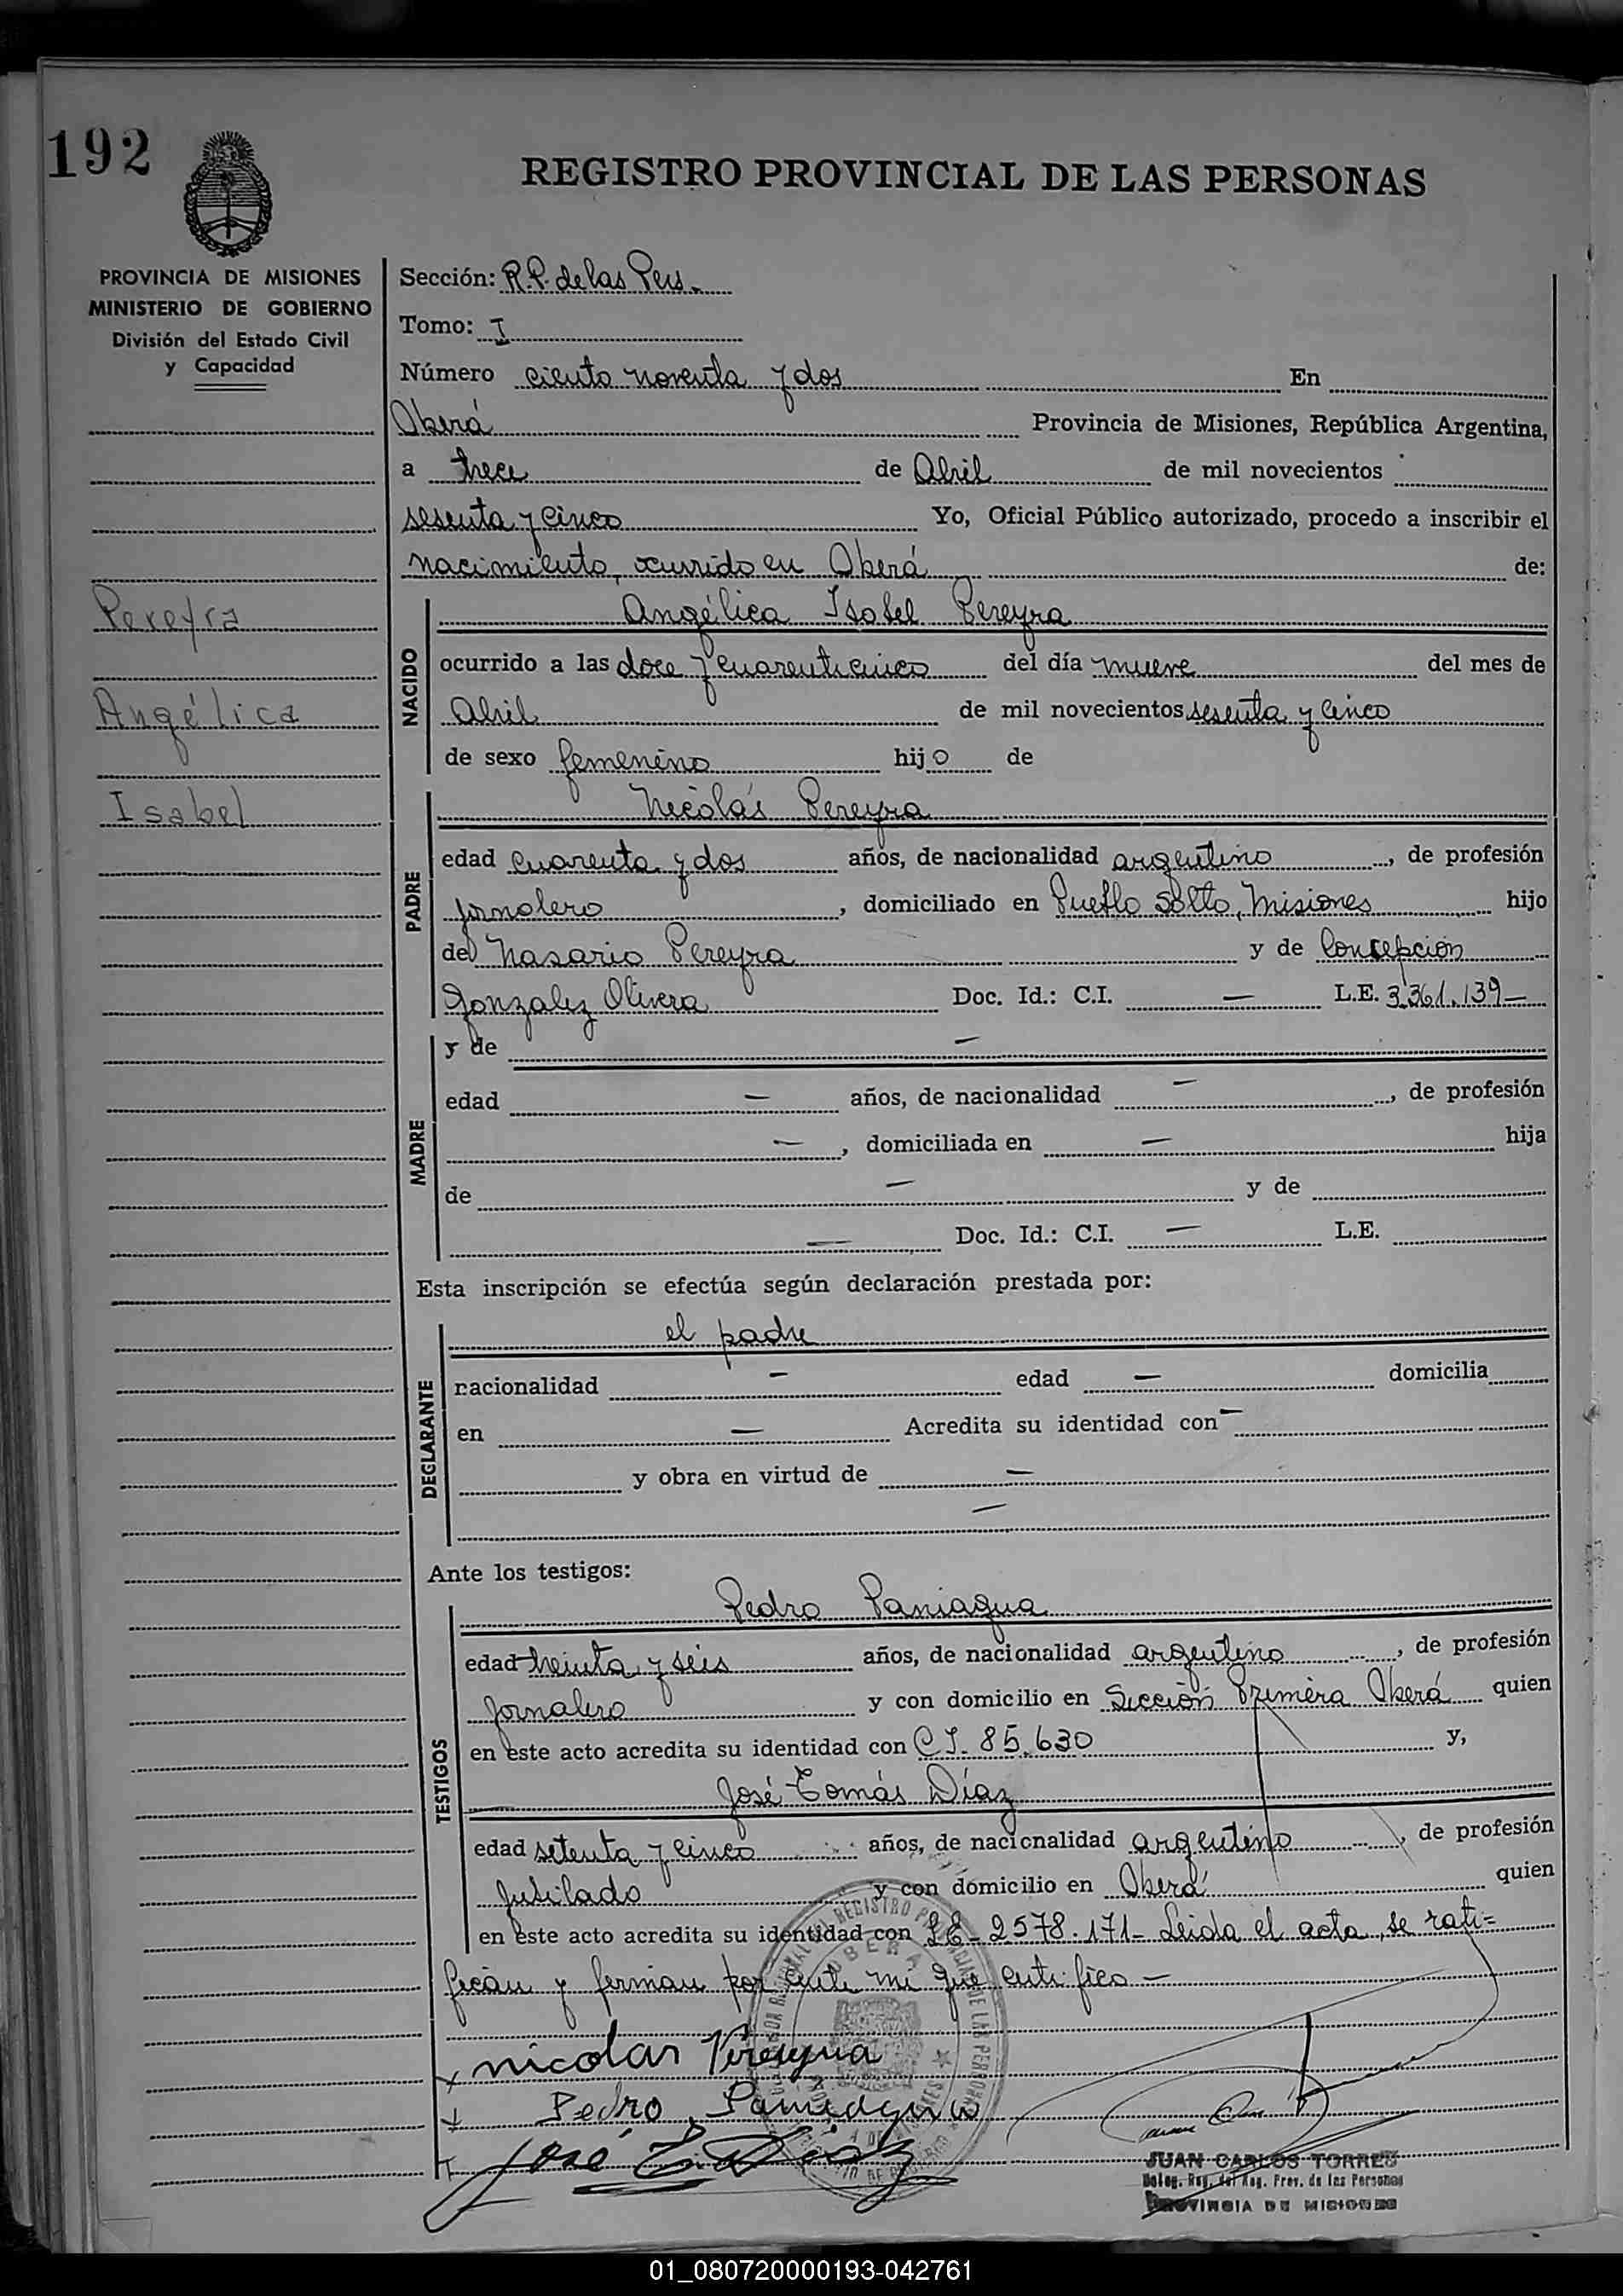 192
REGISTRO PROVINCIAL DE LAS PERSONAS
PROVINCIA DE MISIONES
MINISTERIO DE GOBIERNO
División del Estado Civil
y Capacidad
Pereyra
Angélica
Isabel
Sección: R.P. de las Pers.
Tomo: I
Número ciento noventa y dos En
Oberá Provincia de Misiones, República Argentina,
a trece de Abril de mil novecientos
sesenta y cinco Yo, Oficial Público autorizado, procedo a inscribir el
nacimiento, ocurrido en Oberá de:
NACIDO
Angélica Isabel Pereyra
ocurrido a las doce y cuarenticinco del día nueve del mes de
Abril de mil novecientos sesenta y cinco
de sexo femenino hijo de
PADRE
Nicolás Pereyra
edad cuarenta y dos años, de nacionalidad argentino, de profesión
jornalero, domiciliado en Pueblo Salto, Misiones hijo
de Nasario Pereyra y de Concepción
Gonzalez Olivera Doc. Id.: C.I. — L.E. 3.361.139—
MADRE
y de —
edad — años, de nacionalidad —, de profesión
—, domiciliada en — hija
de — y de
— Doc. Id.: C.I. — L.E.
Esta inscripción se efectúa según declaración prestada por:
DECLARANTE
el padre
nacionalidad — edad — domicilia
en — Acredita su identidad con —
y obra en virtud de —
—
Ante los testigos:
TESTIGOS
Pedro Paniagua
edad treinta y seis años, de nacionalidad argentino, de profesión
Jornalero y con domicilio en Sección Primera Oberá quien
en este acto acredita su identidad con C.I. 85.630 y,
José Tomás Díaz
edad setenta y cinco años, de nacionalidad argentino, de profesión
Jubilado y con domicilio en Oberá quien
en este acto acredita su identidad con L.E. 2578.171- Leida el acta, se rati=
fican y firman por ante mi que certifico —
nicolas Pereyra
Pedro Paniagua
José T. Díaz
JUAN CARLOS TORRES
Deleg. Reg. del Reg. Prov. de las Personas
PROVINCIA DE MISIONES
01_080720000193-042761